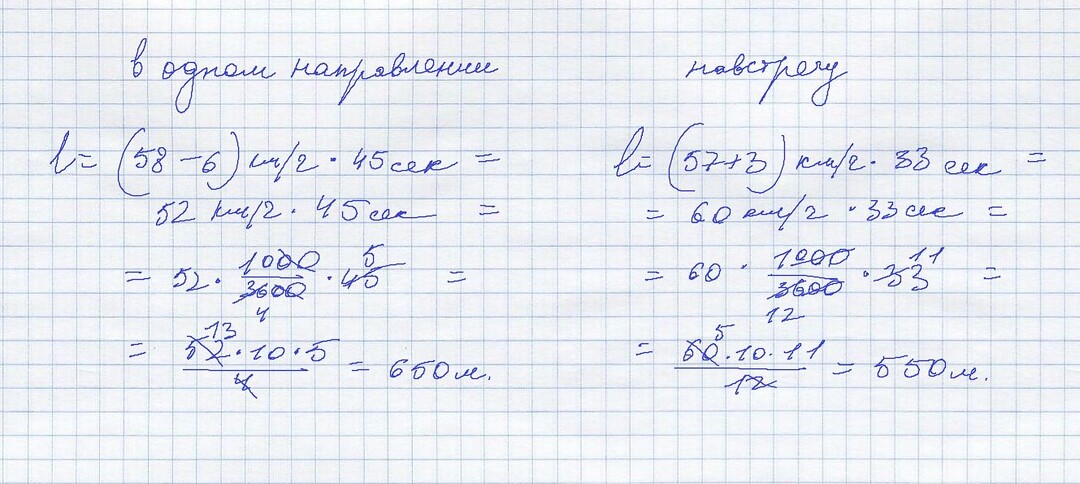 в одном направлении
l = (58 - 6) км/г · 45 сек =
52 км/г · 45 сек =
= 52 · 1000/3600 · 45 =
5
4
13
= 52 · 10 · 5 / 4 = 650 м.
навстречу
l = (57 + 3) км/г · 33 сек =
= 60 км/г · 33 сек =
= 60 · 1000/3600 · 33 =
11
12
5
= 60 · 10 · 11 / 12 = 550 м.